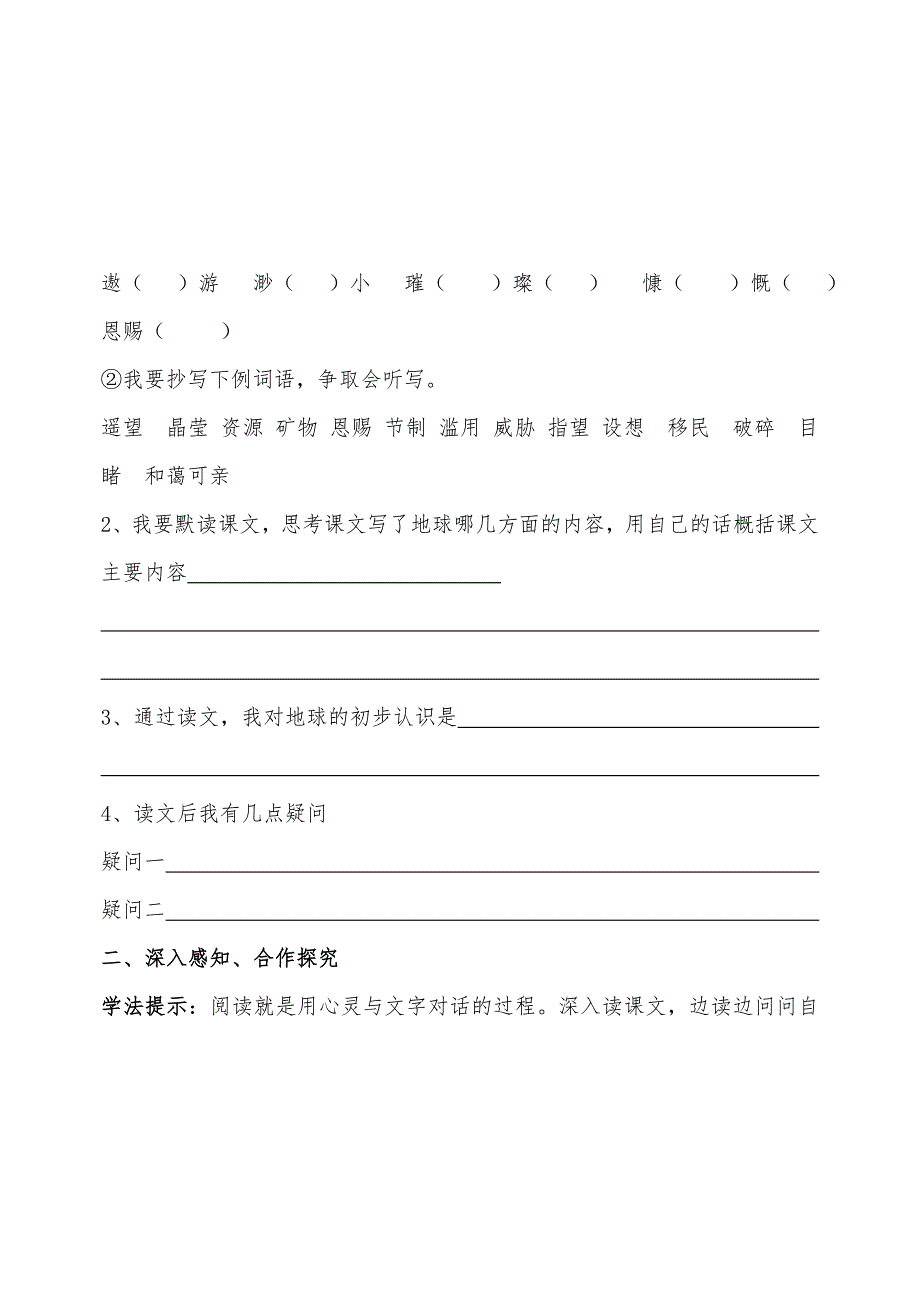 遨（   ）游   渺（   ）小   璀（    ）璨（   ）   慷（    ）慨（   ）
恩赐（     ）
②我要抄写下例词语，争取会听写。
遥望  晶莹 资源 矿物 恩赐 节制 滥用 威胁 指望 设想  移民  破碎  目
睹  和蔼可亲
2、我要默读课文，思考课文写了地球哪几方面的内容，用自己的话概括课文
主要内容
3、通过读文，我对地球的初步认识是
4、读文后我有几点疑问
疑问一
疑问二
二、深入感知、合作探究
学法提示：阅读就是用心灵与文字对话的过程。深入读课文，边读边问问自